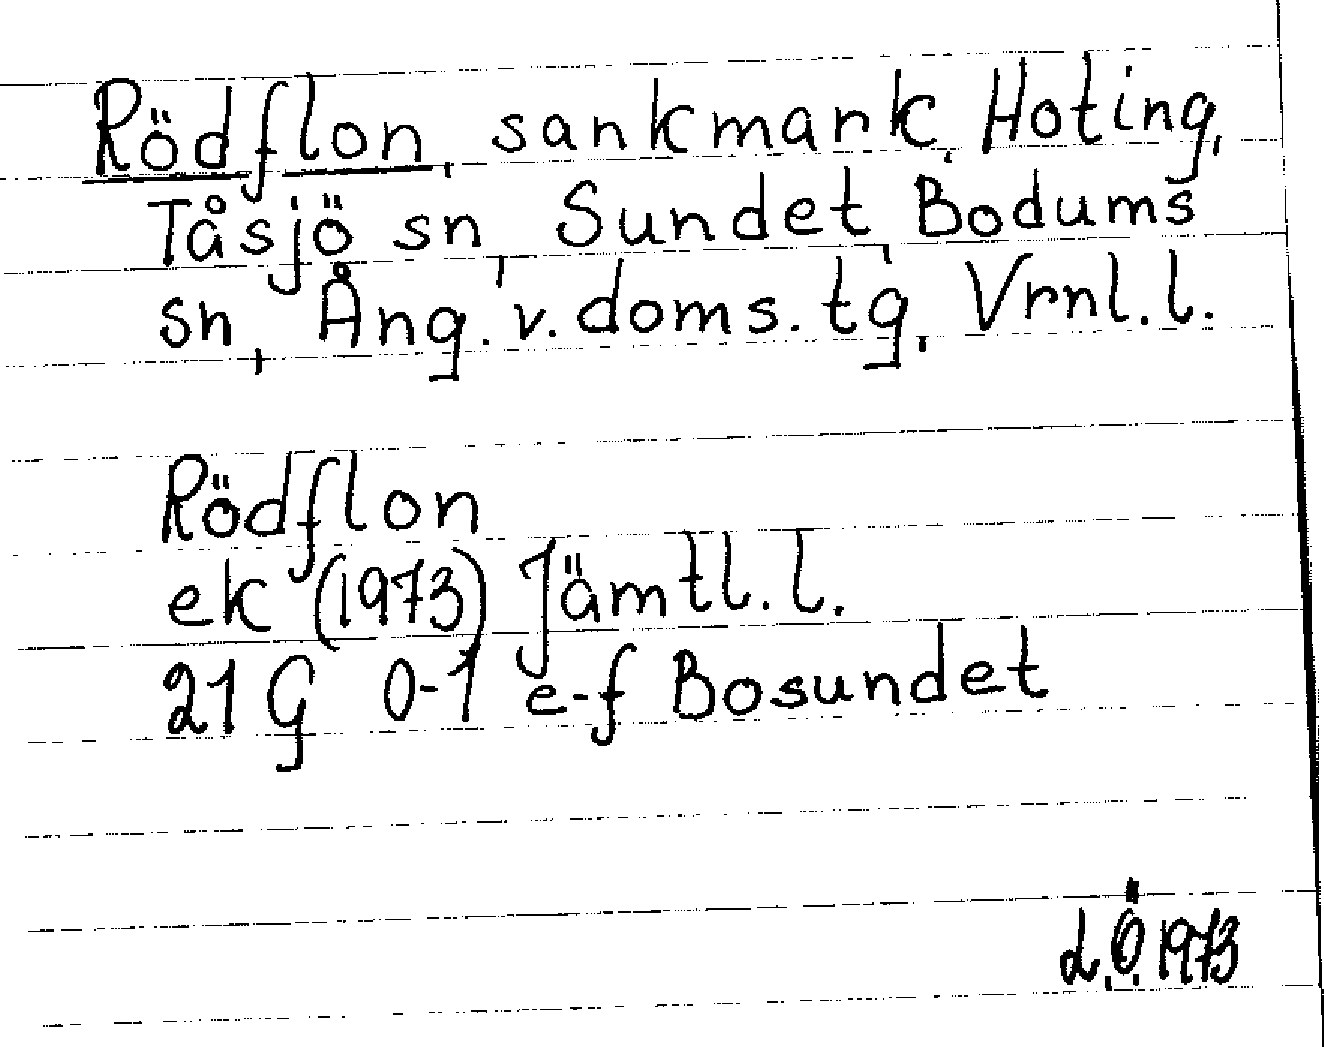 Rödflon, sankmark, Hoting,
Tåsjö sn, Sundet, Bodums
sn, Ång. v. doms. tg, Vrnl. l.
Rödflon
ek (1973) Jämtl. l.
21 G 0-1 e-f Bosundet
L.Ö. 1973